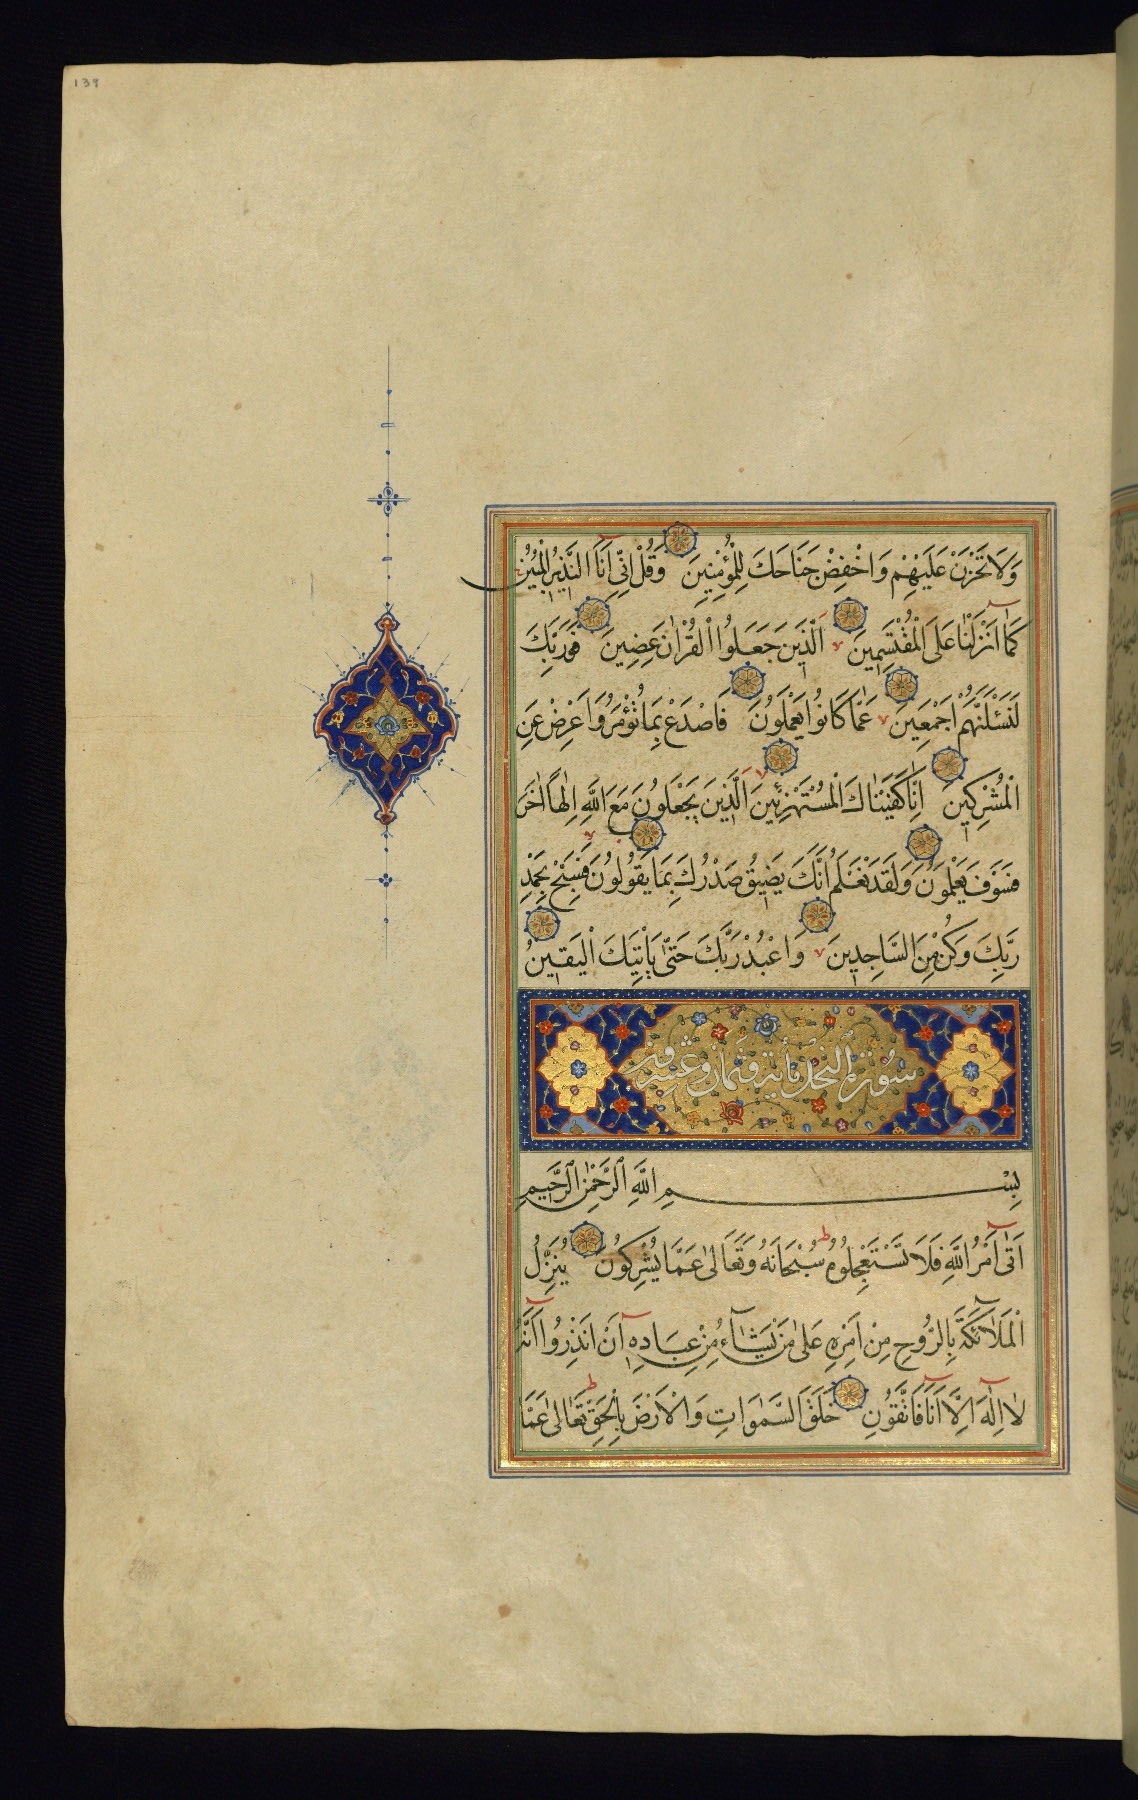 139
وَلَا تَحْزَنْ عَلَيْهِمْ وَاخْفِضْ جَنَاحَكَ لِلْمُؤْمِنِينَ وَقُلْ اِنِّي اَنَا النَّذِيرُ الْمُبِينُ
كَمَا اَنْزَلْنَا عَلَى الْمُقْتَسِمِينَ اَلَّذِينَ جَعَلُوا الْقُرْاٰنَ عِضِينَ فَوَرَبِّكَ
لَنَسْئَلَنَّهُمْ اَجْمَعِينَ عَمَّا كَانُوا يَعْمَلُونَ فَاصْدَعْ بِمَا تُؤْمَرُ وَاَعْرِضْ عَنِ
الْمُشْرِكِينَ اِنَّا كَفَيْنَاكَ الْمُسْتَهْزِئِينَ اَلَّذِينَ يَجْعَلُونَ مَعَ اللَّهِ اِلٰهًا اٰخَرَ
فَسَوْفَ يَعْلَمُونَ وَلَقَدْ نَعْلَمُ اَنَّكَ يَضِيقُ صَدْرُكَ بِمَا يَقُولُونَ فَسَبِّحْ بِحَمْدِ
رَبِّكَ وَكُنْ مِنَ السَّاجِدِينَ وَاعْبُدْ رَبَّكَ حَتّٰى يَاْتِيَكَ الْيَقِينُ
سورة النحل مائة وثمان وعشرون
بِسْمِ اللَّهِ الرَّحْمٰنِ الرَّحِيمِ
اَتٰى اَمْرُ اللَّهِ فَلَا تَسْتَعْجِلُوهُ سُبْحَانَهُ وَتَعَالٰى عَمَّا يُشْرِكُونَ يُنَزِّلُ
الْمَلَآئِكَةَ بِالرُّوحِ مِنْ اَمْرِهِ عَلٰى مَنْ يَشَآءُ مِنْ عِبَادِهِ اَنْ اَنْذِرُوا اَنَّهُ
لَا اِلٰهَ اِلَّا اَنَا فَاتَّقُونِ خَلَقَ السَّمٰوَاتِ وَالْاَرْضَ بِالْحَقِّ تَعَالٰى عَمَّا